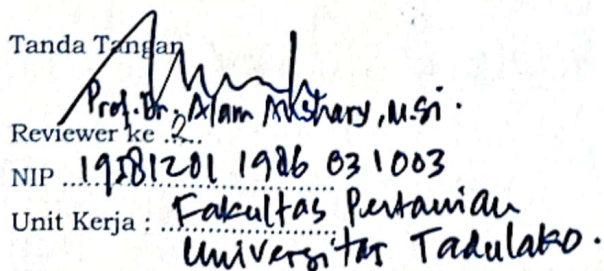 Tanda Tangan
Prof. Dr. Alam Anshary, M.Si.
Reviewer ke .2....
NIP ....19581201 1986 031003
Unit Kerja : Fakultas Pertanian
Universitas Tadulako.